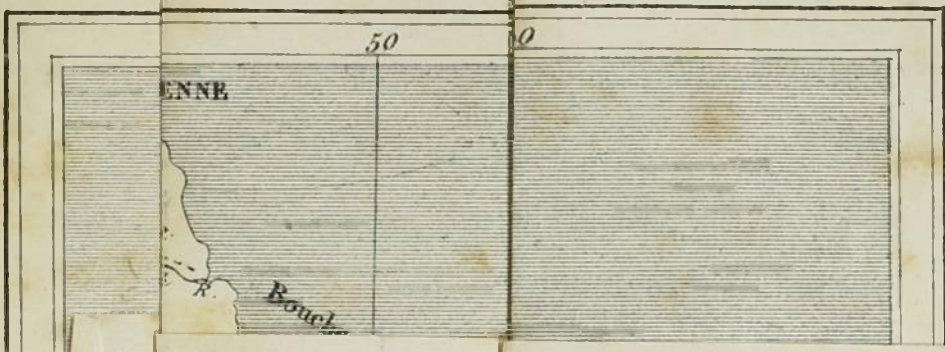 50 0
ENNE
R.
Bouch